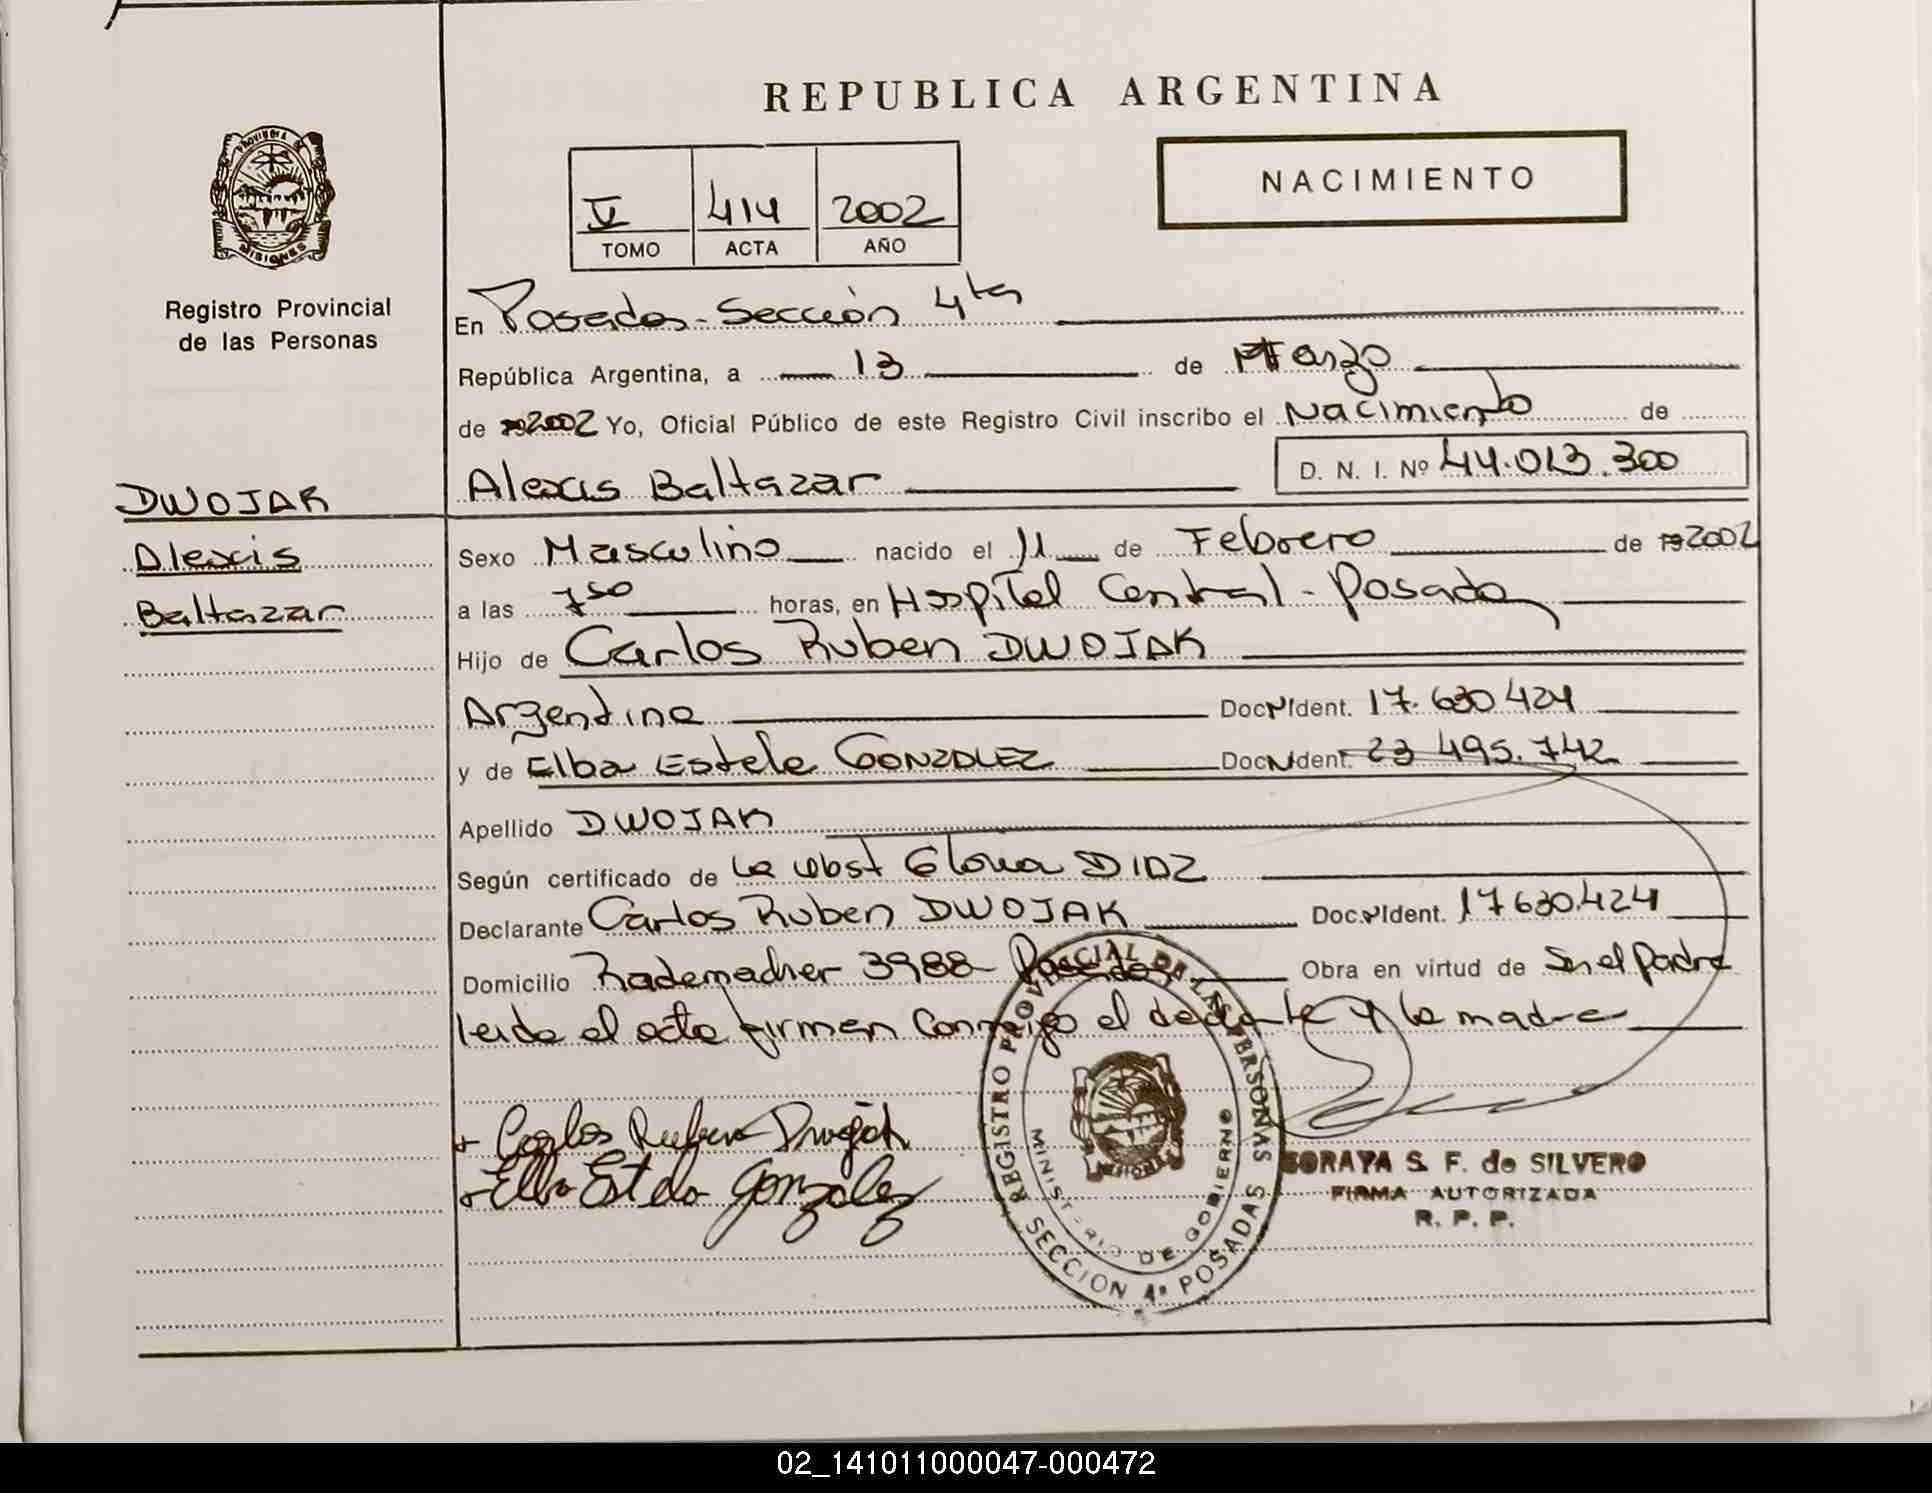 REPUBLICA ARGENTINA
NACIMIENTO
V 414 2002
TOMO ACTA AÑO
PROVINCIA DE
MISIONES
Registro Provincial
de las Personas
En Posadas - Sección 4ta
República Argentina, a 13 de Marzo
de 2002 Yo, Oficial Público de este Registro Civil inscribo el Nacimiento de
Alexis Baltazar D. N. I. Nº 44.013.300
DWOJAK
Alexis
Baltazar
Sexo Masculino nacido el 11 de Febrero de 192002
a las 7 50 horas, en Hospital Central - Posadas
Hijo de Carlos Ruben DWOJAK
Argentina Doc. Ident. 17.630.424
y de Elba Estela GONZALEZ Doc. Ident. 23 495.742
Apellido DWOJAK
Según certificado de la obst Gloria DIAZ
Declarante Carlos Ruben DWOJAK Doc. Ident. 17630.424
Domicilio Rademacher 3988 Posadas Obra en virtud de Ser el padre
leida el acta firman Conmigo el declarante y la madre
Carlos Ruben Dwojak
Elba Estela Gonzalez
REGISTRO PROVINCIAL DE LAS PERSONAS
MINISTERIO DE GOBIERNO
SECCION 4ª POSADAS
SORAYA S. F. de SILVERO
FIRMA AUTORIZADA
R. P. P.
02_141011000047-000472